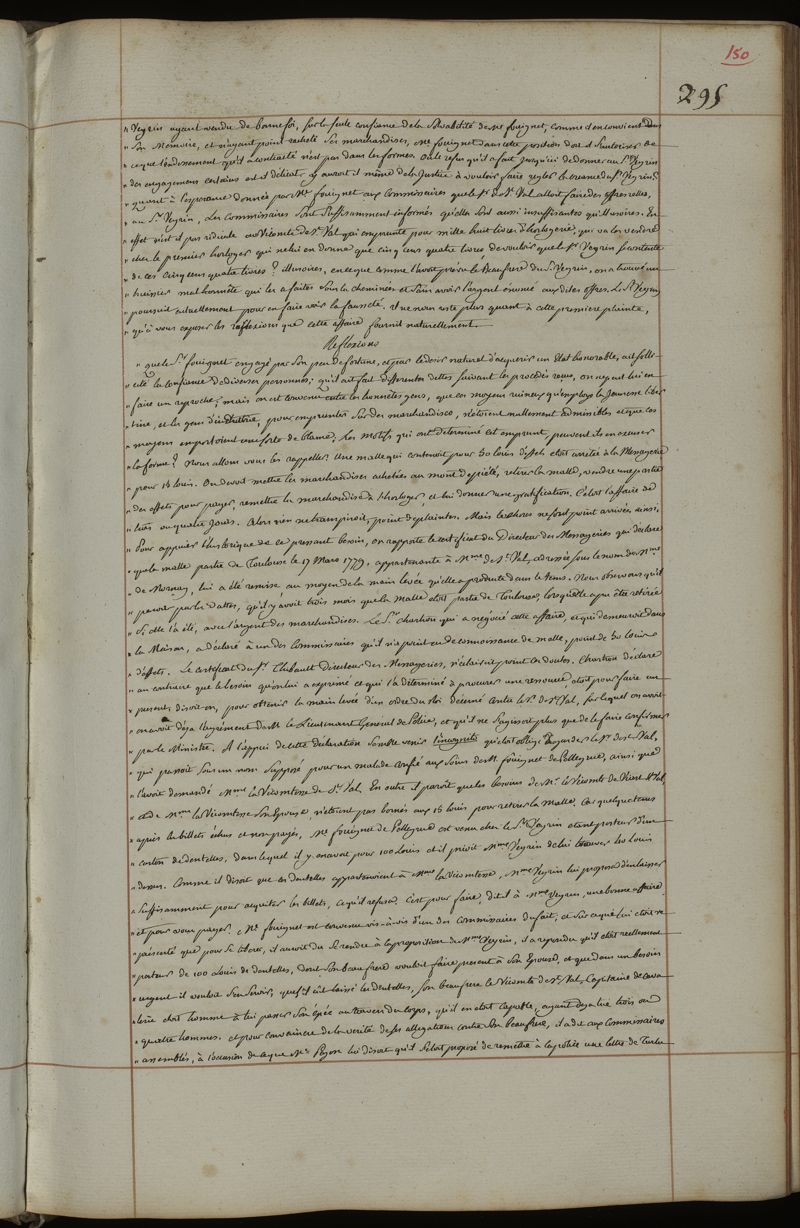 150
295
" Veyrin ayant vendu de bonne foi, sur la seule confiance de la solvabilité de Me fouignet, comme il en convient dans
" Son Mémoire, et n'ayant point racheté Ses marchandises, Me fouignet dans cette position doit il S'autoriser de
" ce que l'endossement qu'il a contracté n'est pas dans les formes. Ou le refus qu'il a fait jusqu'ici de donner au Sr. Veyrin
" des engagemens certains est il délicat. Il y auroit même de la Justice à vouloir faire regler la créance du Sr. Veyrin.
" quant à l'esperance donnée par Me fouignet aux Commissaires que le Sr. de St. Val alloit faire des offres réelles,
" au Sr. Veyrin, Les Commissaires Sont Suffisamment informés qu'elles Sont aussi insuffisantes qu'illusoires. En
" effet n'est il pas ridicule au Vicomte de St. Val qui emprunte pour mille huit livres d'horlogerie, qui va les vendre
" chez le premier horloger qui ne lui en donne que cinq cens quatre livres de vouloir que le Sr. Veyrin Se contente
" de ces cinq cens quatre livres? illusoires, en ce que comme l'avoit prévu le Beaufrere du Sr. Veyrin, on a trouvé un
" huissier malhonnête qui les a faites Sous la cheminée et Sans avoir l'argent énoncé aux dites offres. Le Sr. Veyrin
" poursuit actuellement pour en faire voir la fausseté. il ne nous reste plus quant à cette premiere plainte,
" qu'à vous exposer les reflexions que cette affaire fournit naturellement.
Reflexions
" que le Sr. fouignet engagé par Son peu de fortune, et par le desir naturel d'acquerir un Etat honorable, ait solli-
" cité la confiance de diverses personnes; qu'il ait fait differentes dettes suivant les procédés reçus, on ne peut lui en
" faire un reproche; mais on est convenu entre les honnêtes gens, que ces moyens ruineux qu'employe la Jeunesse liber
" tine, et les gens d'industrie, pour emprunter Sur des marchandises, n'étoient nullement admissibles et que ces
" moyens emportoient une sorte de blame, Les motifs qui ont déterminé cet emprunt, peuvent ils en excuser
" la forme? Nous allons vous les rappeller. Une malle qui contenoit pour 50 louis d'effets etoit arrêtée à la Messagerie
" pour 16 louis. On devoit mettre les marchandises achetées au mont de piété, retirer la malle, vendre une partie
" des effets pour payer, remettre la marchandise à l'horloger, et lui donner une gratification. C'étoit l'affaire de
" trois ou quatre jours. Alors rien ne transpiroit, point de plaintes. Mais les choses ne sont point arrivées ainsi.
" Pour appuier l'historique de ce pressant besoin, on rapporte le certificat du Directeur des Messageries qui declare
" que la malle partie de Toulouse le 17 Mars 1779, appartenante à Mme de St. Val, adressée sous le nom de Mme
" de Mornay, lui a été remise au moyen de la main levée qu'elle a produite dans le tems. Nous observons qu'il
" paroit par les dattes, qu'il y avoit trois mois que la Malle etoit partie de Toulouse, lorsqu'elle a pu être retirée
" Si elle l'a été, avec l'argent des marchandises. Le Sr. Chartron qui a négocié cette affaire, et qui demeuroit dans
" la Maison, a déclaré à un des Commissaires qu'il n'a point eu de connoissance de malle, point de 50 louis
" d'effets. Le certificat du Sr. Thibault Directeur des Messageries, n'éclaircit point ces doutes. Chartron déclare
" au contraire que le besoin qu'on lui a exprimé et qui l'a déterminé à procurer une ressource, étoit pour faire un
" present, disoit on, pour obtenir la main levée d'un ordre du Roi décerné contre le Sr. de St. Val, sur lequel on avoit
" on avoit deja l'agrément de M. le Lieutenant General de Police, et qu'il ne S'agissoit plus que de le faire confirmer
" par le Ministre. A l'appui de cette déclaration Semble venir l'incognito qu'étoit obligé de garder le Sr. de St. Val,
" qui passoit Sous un nom Supposé pour un malade confié aux Soins de M. fouignet de Pellegrue, ainsi que
" l'avoit demandé Mme la Vicomtesse de St. Val, En outre il paroit que les besoins de Mr. le Vicomte de Vienne St. Val
" et de Mme la Vicomtesse Son Epouse, n'étoient pas bornés aux 16 louis pour retirer la Malle. Car quelque tems
" après les billets échus et non payés, Me fouignet de Pellegrue est venu chez le Sr. Veyrin etant porteur d'un
" carton de dentelles, dans lequel il y en avoit pour 100 Louis et il prioit Mme Veyrin de lui trouver 100 Louis
" dessus. Comme il disoit que ces dentelles appartenoient à Mme la Vicomtesse, Mme Veyrin lui proposa d'en laisser
" Suffisamment pour acquitter les billets, ce qu'il refusa. C'est pour faire, dit-il à Mme Veyrin, une bonne affaire
" et pour vous payer. Me fouignet est convenu vis-à-vis d'un des Commissaires du fait, et Sur ce qui lui etoit re
" présenté que pour Se liberer, il auroit du Se rendre à la proposition de Mme Veyrin, il a repondu qu'il étoit reellement
" porteur de 100 Louis de dentelles, dont Son beau frere vouloit faire present à Son Epouse, et que dans un besoin
" urgent il vouloit S'en Servir, que s'il eût laissé les dentelles, Son beaufrere le Vicomte de St. Val, Capitaine de Cava
" lerie etoit homme à lui passer Son Epée au travers du corps, qu'il en étoit capable, ayant deja tué trois ou
" quatre hommes. et pour convaincre de la verité de Ses allegations contre Son Beaufrere, il a dit aux Commissaires
" assemblés, à l'occasion de ce que Me Pigeon lui disoit qu'il S'étoit proposé de remettre à la police une lettre de Turlu